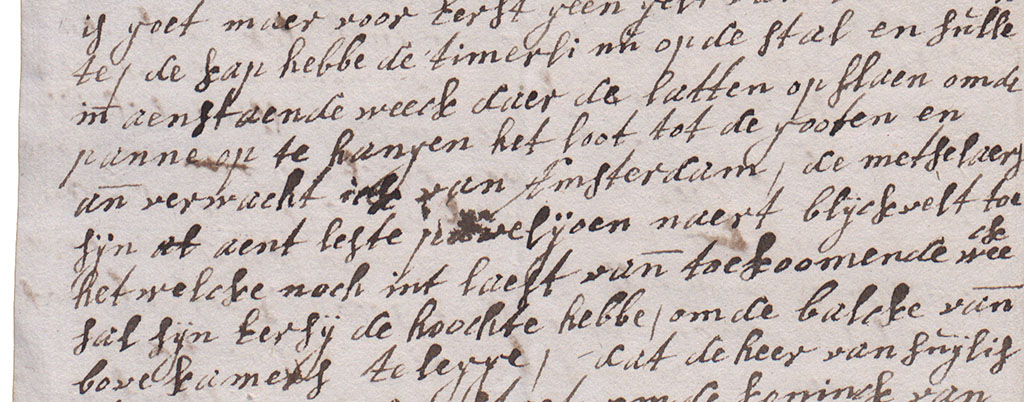 is goet maer voor eerst geen gelt van
te / de kap hebbe de timerli nu op de stal en sulle
in aenstaende weeck daer de latten op slaen om de
panne op te hangen het loot tot de gooten en
an verwacht ick van Amsterdam / de metselaers
sijn at aent leste paveljoen naert blijckvelt toe
het welcke noch int laest van toekoomende weecke
sal sijn eersy de hoochte hebbe / om de balcke van
bove kamers te legge / dat de heer van suylis
om de koninck van